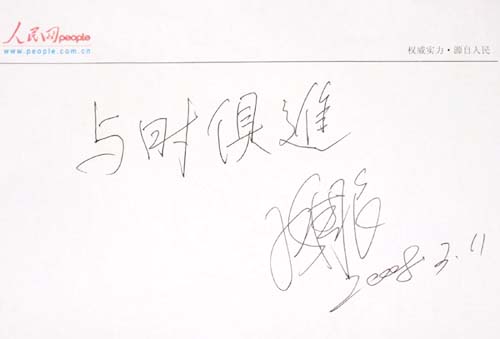 人民网 people
www.people.com.cn
权威实力·源自人民
与时俱進
2008.3.11